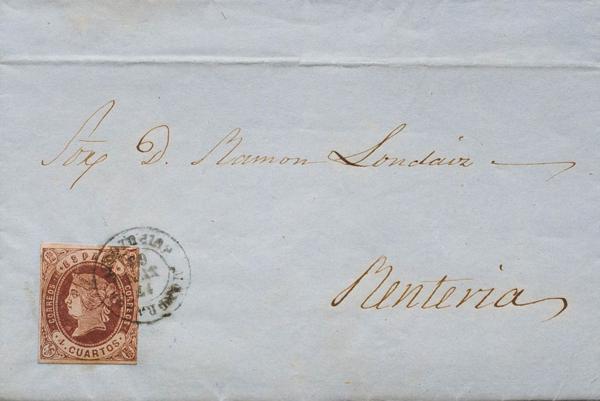 Sor. D. Ramon Londaiz
Renteria
ESPAÑA
CORREOS
4 CUARTOS